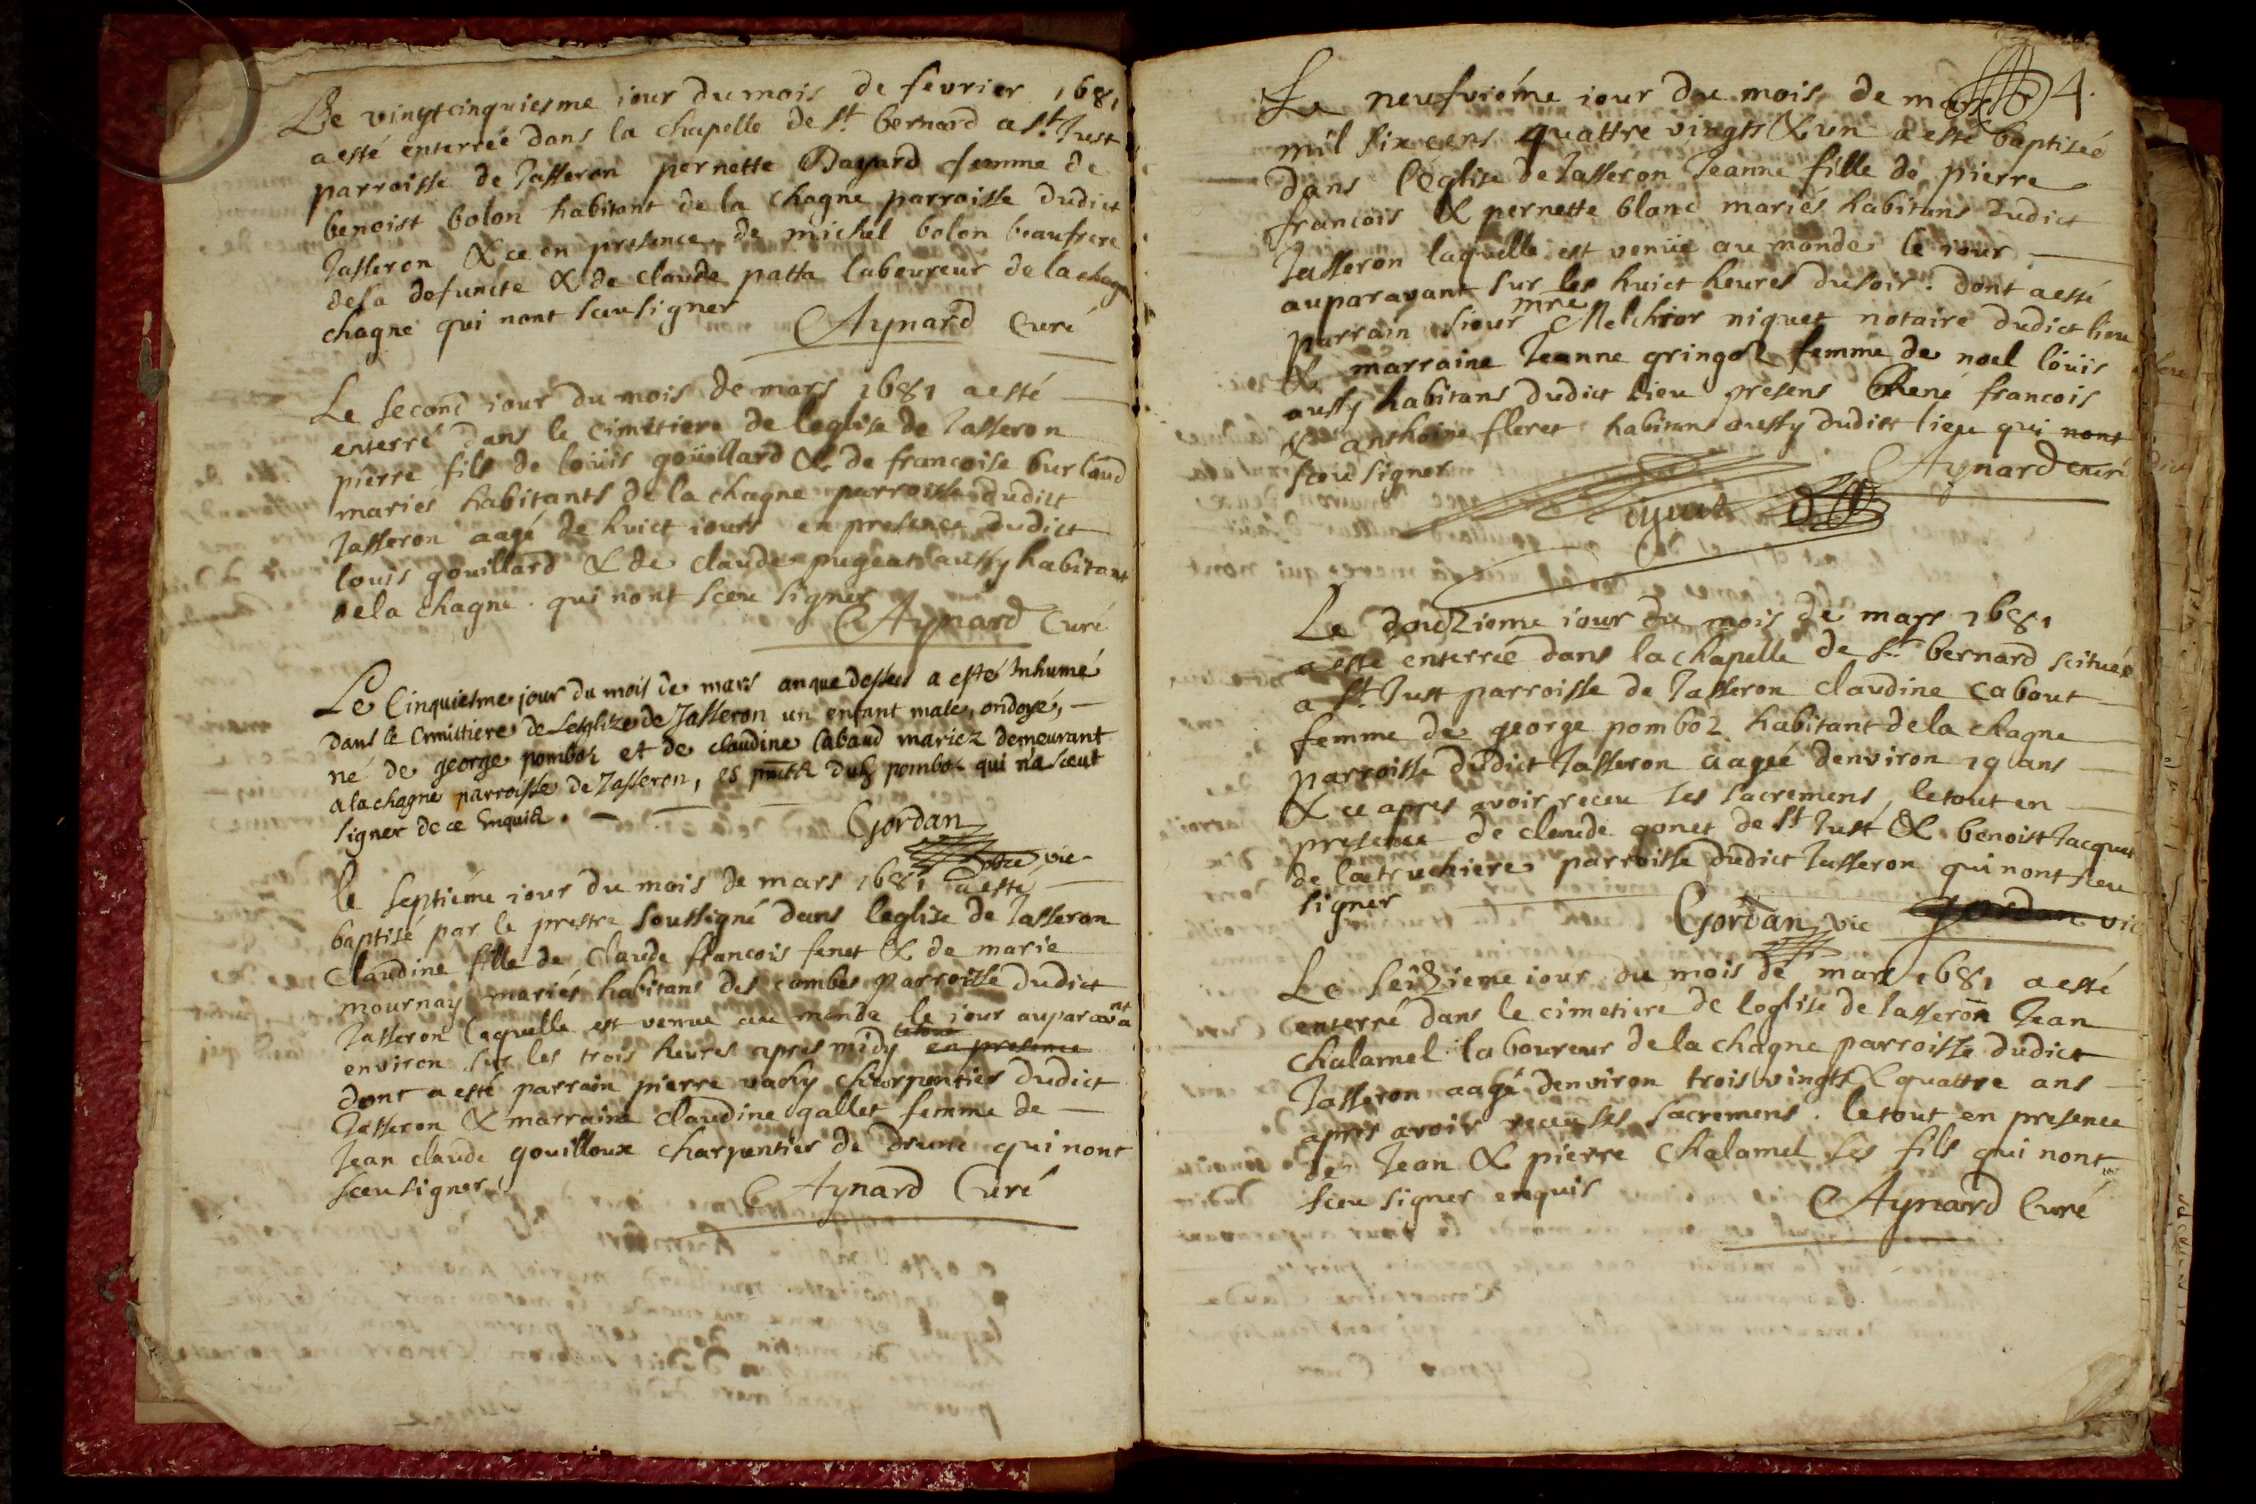 Le vingtcinquiesme iour du mois de fevrier 1681
a esté enterrée dans la chapelle de st bernard a st Just
parroisse de Jasseron pernette Bayard femme de
benoist bolon habitant de la chagne parroisse dudict
Jasseron & ce en presence de michel bolon beaufrere
de la defuncte & de claude patta laboureur de la chagn
chagne qui nont sceu signer Aynard Curé
Le second iour du mois de mars 1681 a esté
enterré dans le cimitiere de leglise de Jasseron
pierre fils de loüis goüillard & de francoise burland
mariés habitants de la chagne parroisse dudict
Jasseron aagé de huict iours en presence dudict
louis gouillard & de claude pugeat aussy habitant
de la chagne qui nont sceu signer
Aynard Curé
Le Cinquiesme jour du mois de mars an que dessus a esté Inhumé
dans le Cimittiere de Leshlize de Jasseron un enfant male, ondoyé,
né de george pomboz et de claudine Cabaud mariez demeurant
a la chagne parroisse de Jasseron, es pnce dud pomboz qui na sceut
signer de ce Enquis.
Gordan
vic
le septiéme iour du mois de mars 1681 a esté
baptisé par le prestre soussigné dans leglise de Jasseron
Claudine fille de Claude francois fenet & de marie
mournay mariés habitans des combes parroisse dudict
Jasseron laquelle est venue au monde le iour auparavant
environ sur les trois heures apres midy en presence
dont a esté parrain pierre vachy charpentier dudict
Jasseron & marraine claudine gallet femme de
Jean claude gouilloux charpentier de drom qui nont
sceu signer Aynard Curé
4.
Le neufviéme iour du mois de mars
mil six cens quattre vingts & un a esté baptisée
dans léglise de Jasseron Jeanne fille de pierre
francois & pernette blanc mariés habitans dudict
Jasseron laquelle est venüe au monde le iour
auparavant sur les huict heures du soir. dont a esté
parrain sieur mre Melchior niquet notaire dudict lieu
& marraine Jeanne gringoz femme de noel loüis
aussy habitans dudict lieu presens René francois
& anthoine fleret habitans aussy dudict lieu qui nont
sceu signer Aynard curé
Le douzieme iour du mois de mars 1681
a esté enterrée dans la chapelle de st bernard scituée
a st Just parroisse de Jasseron claudine cabout
femme de george pomboz habitant de la chagne
parroisse dudict Jasseron aagée denviron 19 ans
& ce apres avoir receu ses sacremens, le tout en
presence de claude gonet de st Just & benoist Jacquet
de la truchiere parroisse dudict Jasseron qui nont sceu
signer Gordan vic gordan vic
Le seizieme iour du mois de mars 1681 a esté
enterré dans le cimetiere de leglise de Jasseron Jean
chalamel laboureur de la chagne parroisse dudict
Jasseron aagé denviron trois vingts & quattre ans
apres avoir receu ses sacremens. le tout en presence
de Jean & pierre chalamel ses fils qui nont
sceu signer enquis Aynard Curé